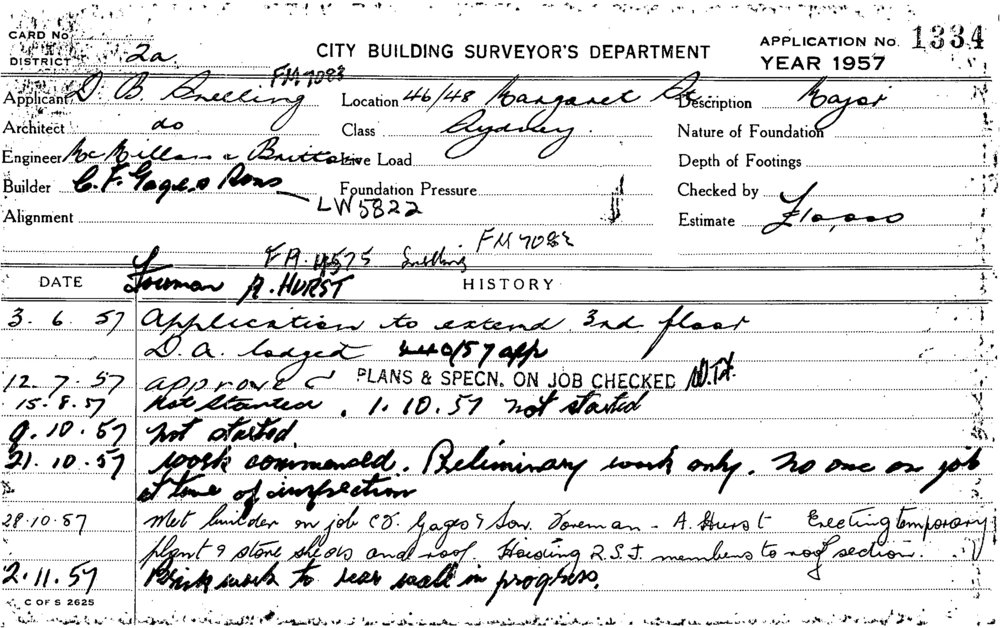 CARD No.
DISTRICT 2a
CITY BUILDING SURVEYOR'S DEPARTMENT
APPLICATION No. 1334
YEAR 1957
FM7083
Applicant D. B. Snelling Location 46/48 Margaret St. Description Major
Architect do Class Sydney. Nature of Foundation
Engineer McMillan & Britton Live Load Depth of Footings
Builder C. F. Gages & Sons Foundation Pressure Checked by
LW5822
Alignment Estimate £10,000
FA. 4575 Snelling FM7083
Foreman A. HURST
DATE HISTORY
3. 6. 57 Application to extend 3rd floor
D. A. lodged 440/57 app
12. 7. 57 approved PLANS & SPECN. ON JOB CHECKED
15. 8. 57 Not Started. 1. 10. 57 not started
9. 10. 57 not started
21. 10. 57 work commenced. Preliminary work only. No one on job
at time of inspection
28. 10. 57 Met builder on job C.F. Gages & Son. Foreman - A. Hurst Erecting temporary
plant & store sheds and roof. Hoisting R.S.J. members to roof section.
2. 11. 57 Brickwork to rear wall in progress.
C OF S 2625